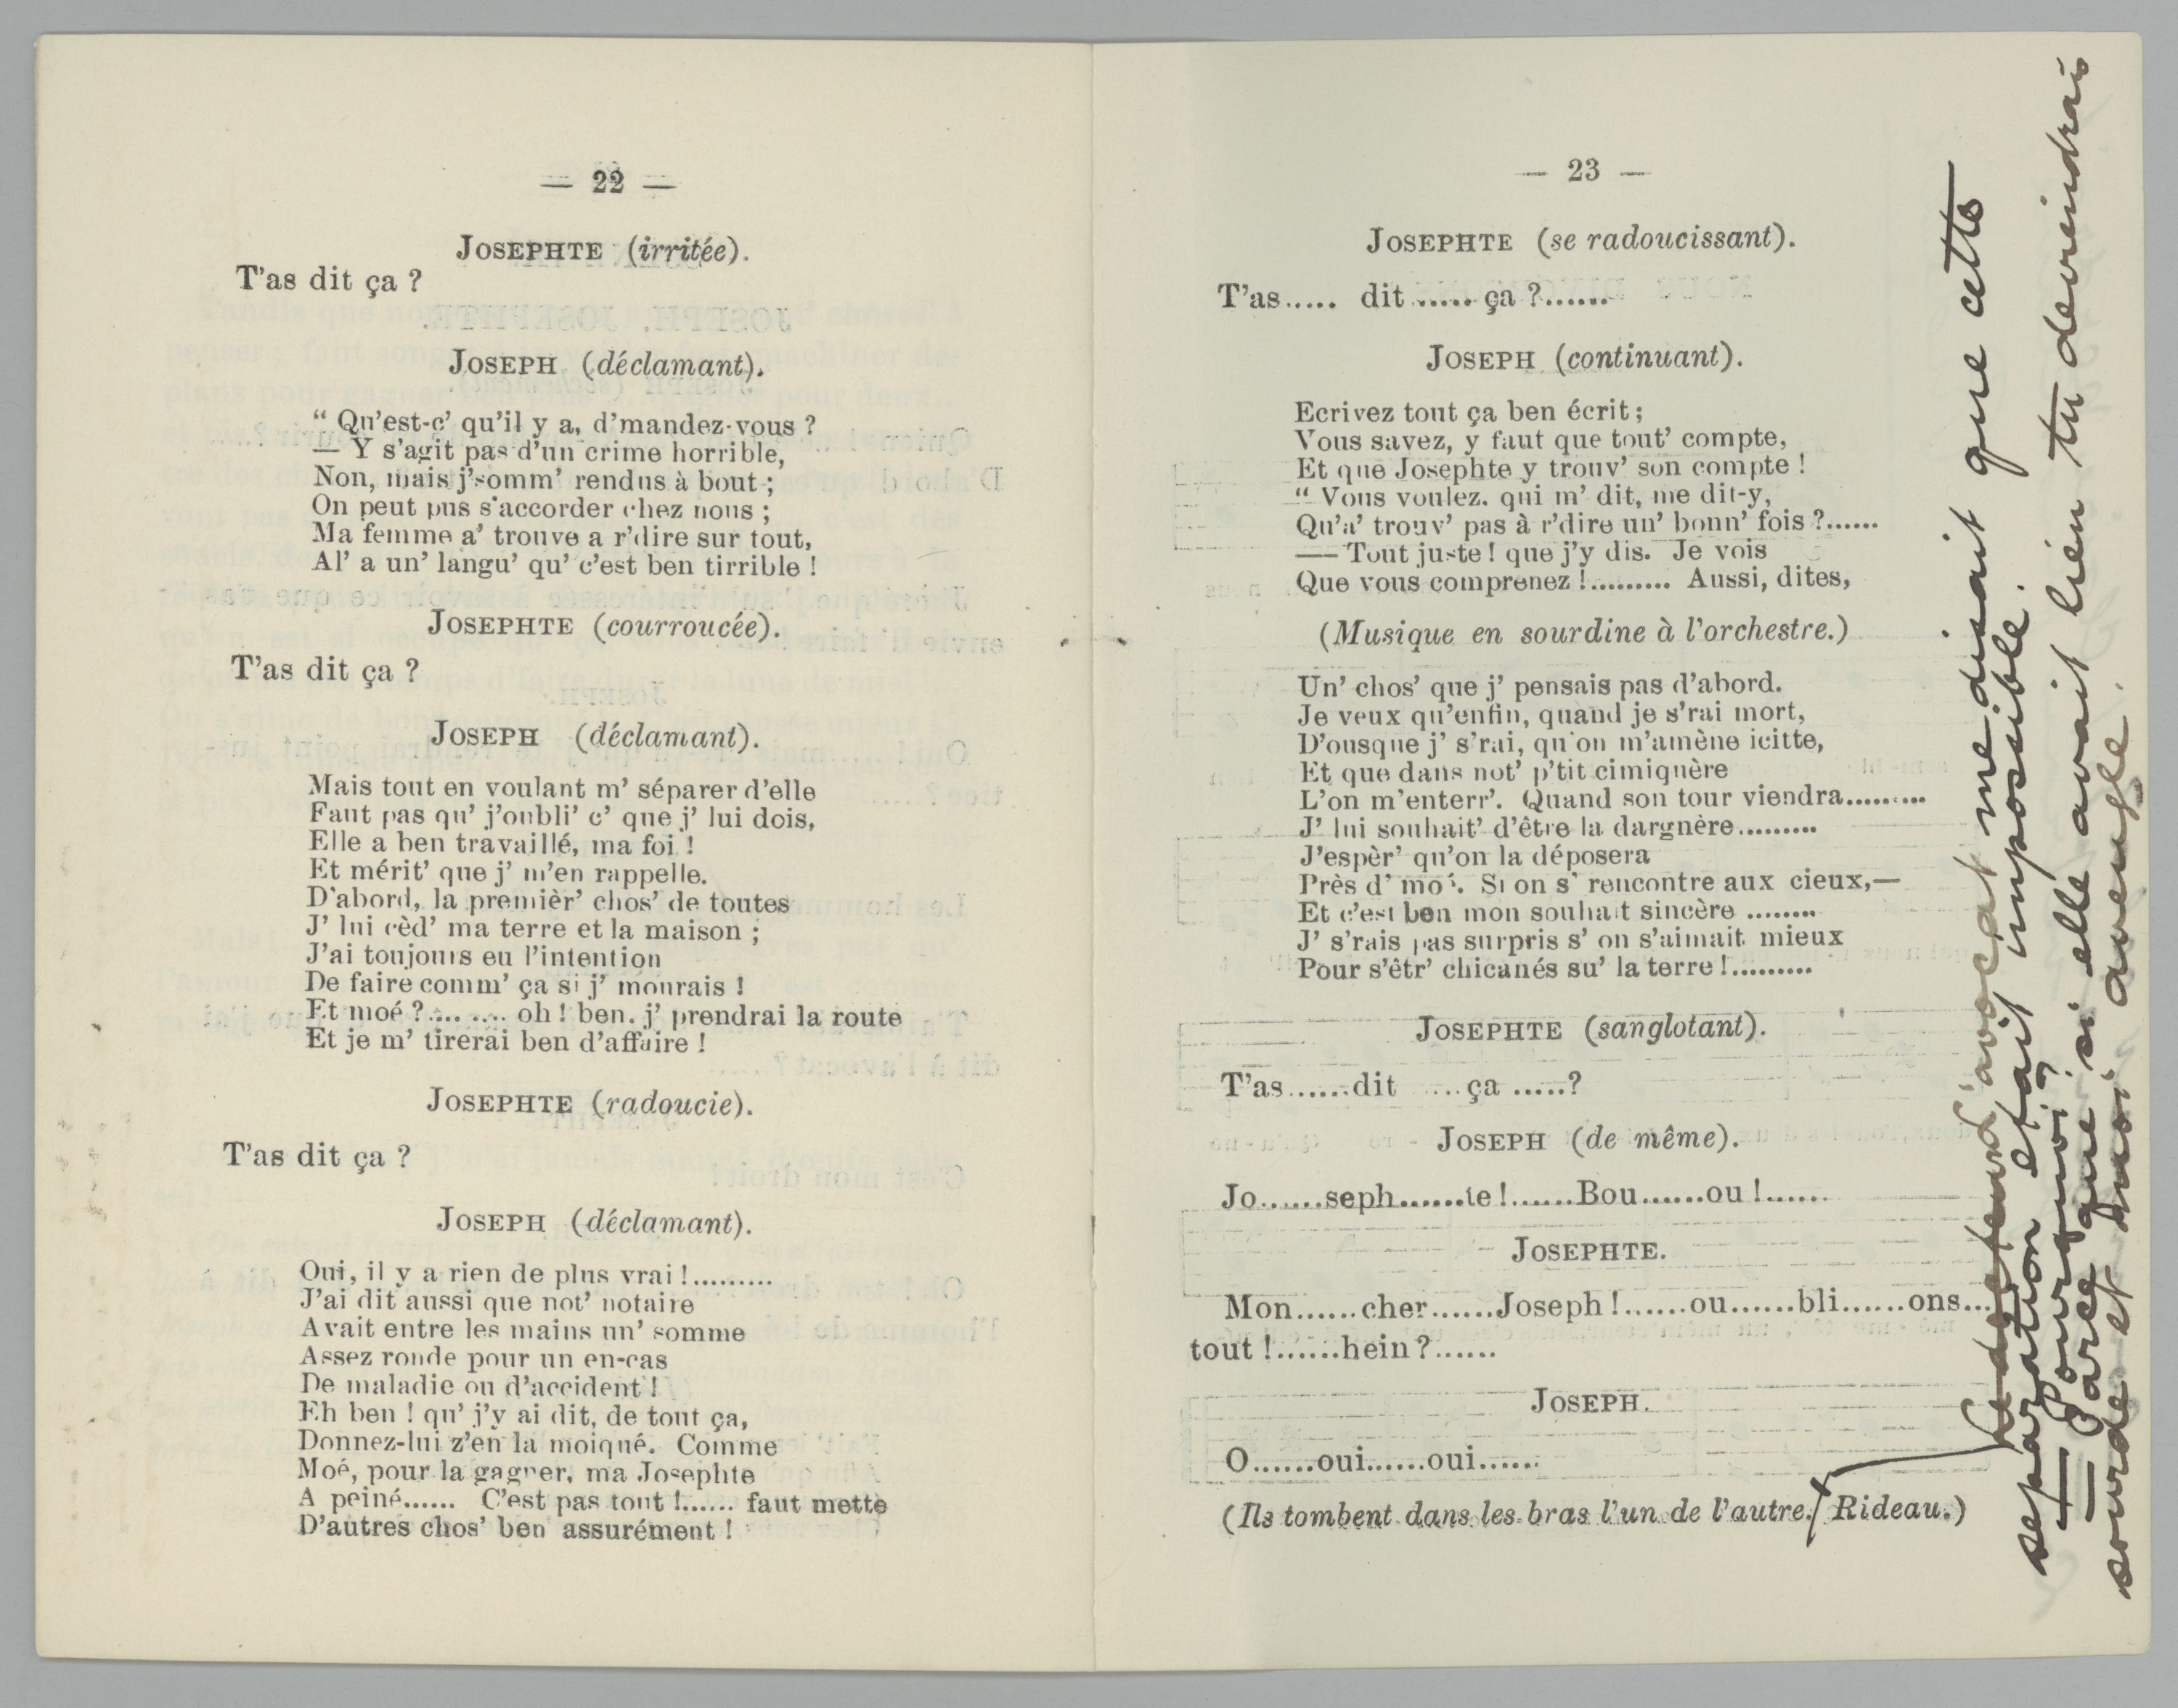 — 22 —
JOSEPHTE (irritée).
T'as dit ça ?
JOSEPH (déclamant).
“ Qu'est-c' qu'il y a, d'mandez-vous ?
— Y s'agit pas d'un crime horrible,
Non, mais j'somm' rendus à bout ;
On peut pus s'accorder chez nous ;
Ma femme a' trouve a r'dire sur tout,
Al' a un' langu' qu' c'est ben tirrible !
JOSEPHTE (courroucée).
T'as dit ça ?
JOSEPH (déclamant).
Mais tout en voulant m' séparer d'elle
Faut pas qu' j'oubli' c' que j' lui dois,
Elle a ben travaillé, ma foi !
Et mérit' que j' m'en rappelle.
D'abord, la premièr' chos' de toutes
J' lui cèd' ma terre et la maison ;
J'ai toujours eu l'intention
De faire comm' ça si j' mourais !
Et moé ?........ oh ! ben. j' prendrai la route
Et je m' tirerai ben d'affaire !
JOSEPHTE (radoucie).
T'as dit ça ?
JOSEPH (déclamant).
Oui, il y a rien de plus vrai !.........
J'ai dit aussi que not' notaire
Avait entre les mains un' somme
Assez ronde pour un en-cas
De maladie ou d'accident !
Eh ben ! qu' j'y ai dit, de tout ça,
Donnez-lui z'en la moiqué. Comme
Moé, pour la gagner, ma Josephte
A peiné...... C'est pas tout !...... faut mette
D'autres chos' ben assurément !
— 23 —
JOSEPHTE (se radoucissant).
T'as..... dit ...... ça ?......
JOSEPH (continuant).
Ecrivez tout ça ben écrit ;
Vous savez, y faut que tout' compte,
Et que Josephte y trouv' son compte !
“ Vous voulez. qui m' dit, me dit-y,
Qu'a' trouv' pas à r'dire un' bonn' fois ?......
— Tout juste ! que j'y dis. Je vois
Que vous comprenez !......... Aussi, dites,
(Musique en sourdine à l'orchestre.)
Un' chos' que j' pensais pas d'abord.
Je veux qu'enfin, quand je s'rai mort,
D'ousque j' s'rai, qu'on m'amène icitte,
Et que dans not' p'tit cimiquère
L'on m'enterr'. Quand son tour viendra.........
J' lui souhait' d'être la dargnère.........
J'espèr' qu'on la déposera
Près d' moi. Si on s' rencontre aux cieux,—
Et c'est ben mon souhait sincère ........
J' s'rais pas surpris s' on s'aimait mieux
Pour s'êtr' chicanés su' la terre !.........
JOSEPHTE (sanglotant).
T'as.......dit ....ça .....?
JOSEPH (de même).
Jo.......seph.......te !.......Bou.......ou !......
JOSEPHTE.
Mon......cher......Joseph !......ou......bli......ons...
tout !......hein ?......
JOSEPH.
O.......oui......oui......
(Ils tombent dans les bras l'un de l'autre. Rideau.)
l'avocat me disait que cette
séparation était impossible.
— Pourquoi ?
— Parce que si elle avait lieu tu deviendrais
sourde et moi aveugle.